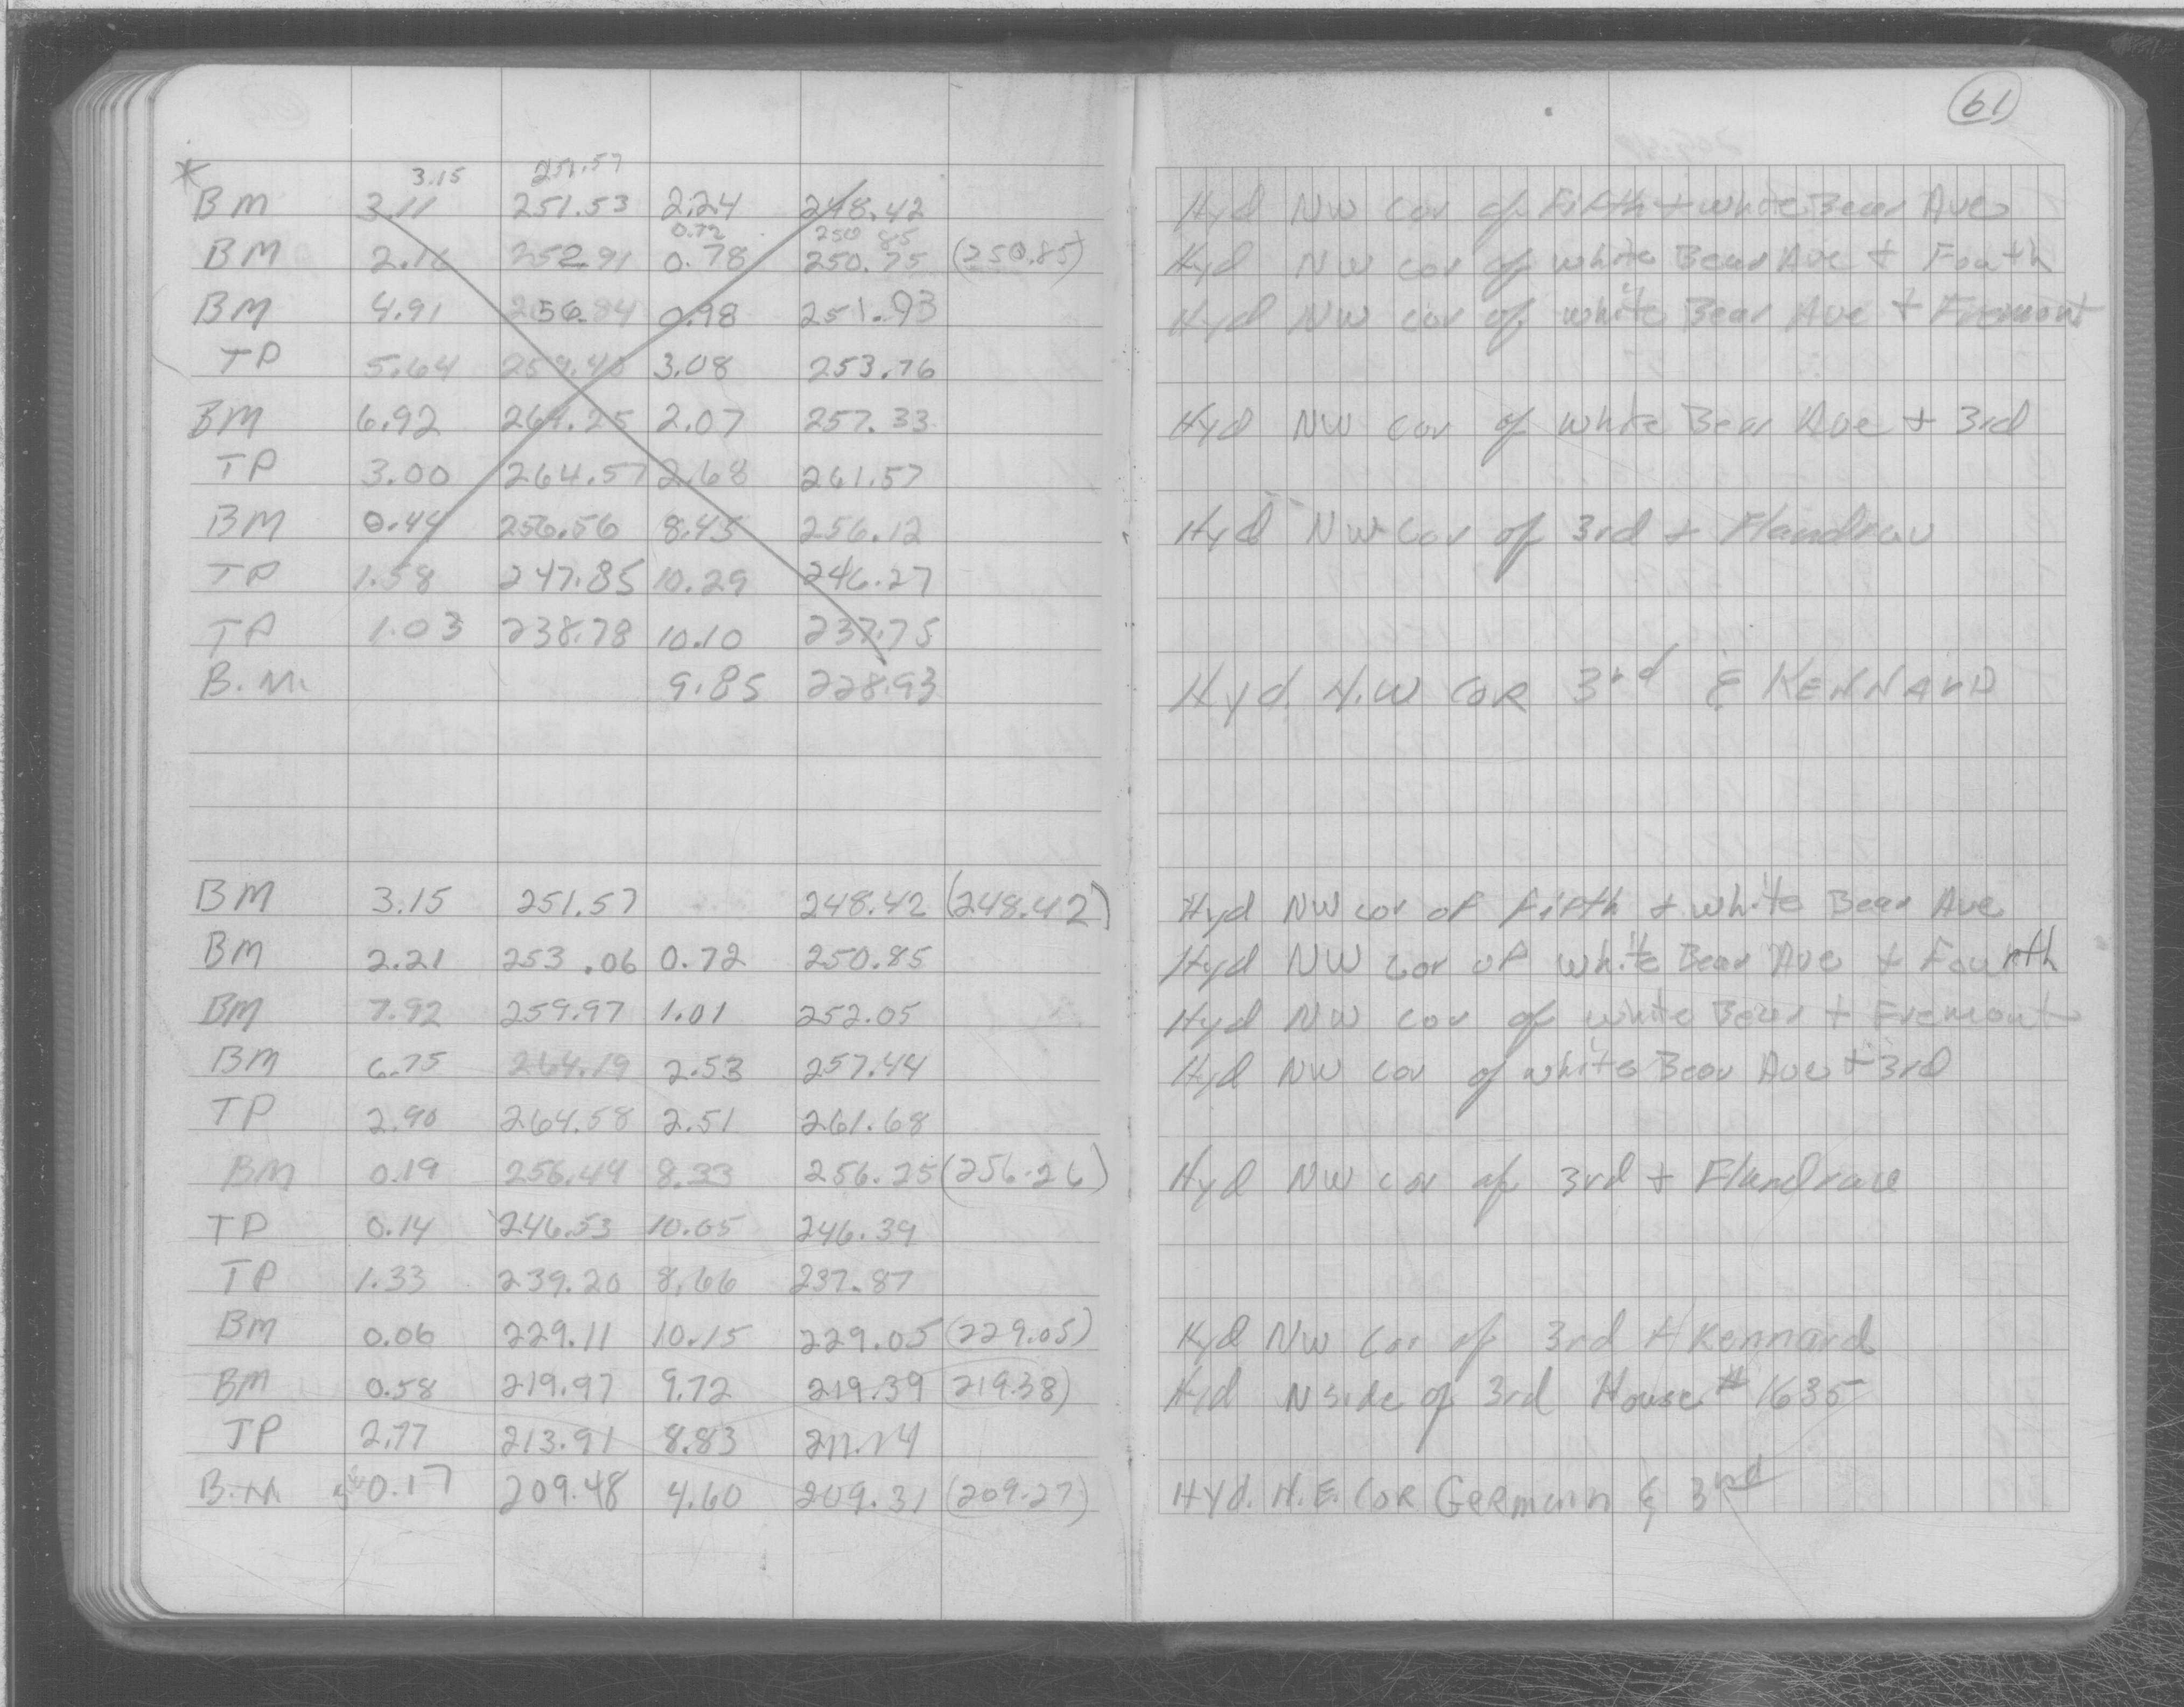 61
* 3.15 251.57
BM 3.11 251.53 2.24 248.42 Hyd NW cor of Fifth + white Bear Ave
0.72 250.85
BM 2.16 252.91 0.78 250.75 (250.85) Hyd NW cor of white Bear Ave + Fouth
BM 4.91 256.84 0.98 251.93 Hyd NW cor of white Bear Ave + Fremont
TP 5.64 259.40 3.08 253.76
BM 6.92 264.25 2.07 257.33 Hyd NW cor of white Bear Ave + 3rd
TP 3.00 264.57 2.68 261.57
BM 0.44 256.56 8.45 256.12 Hyd NW cor of 3rd + Flandrau
TP 1.58 247.85 10.29 246.27
TP 1.03 238.78 10.10 237.75
B.M. 9.85 228.93 Hyd. N.W COR 3rd & KENNARD
BM 3.15 251.57 248.42 (248.42) Hyd NW cor of fifth + white Bear Ave
BM 2.21 253.06 0.72 250.85 Hyd NW cor of white Bear Ave + Fourth
BM 7.92 259.97 1.01 252.05 Hyd NW cor of white Bear + Fremont
BM 6.75 264.19 2.53 257.44 Hyd NW cor of white Bear Ave + 3rd
TP 2.90 264.58 2.51 261.68
BM 0.19 256.44 8.33 256.25 (256.26) Hyd NW cor of 3rd + Flandrau
TP 0.14 246.53 10.05 246.39
TP 1.33 239.20 8.66 237.87
BM 0.06 229.11 10.15 229.05 (229.05) Hyd NW Cor of 3rd + Kennard
BM 0.58 219.97 9.72 219.39 219.38) Hyd N Side of 3rd House # 1635
TP 2.77 213.91 8.83 211.14
B.M 0.17 209.48 4.60 209.31 (209.27) Hyd. N.E. COR Germain & 3rd